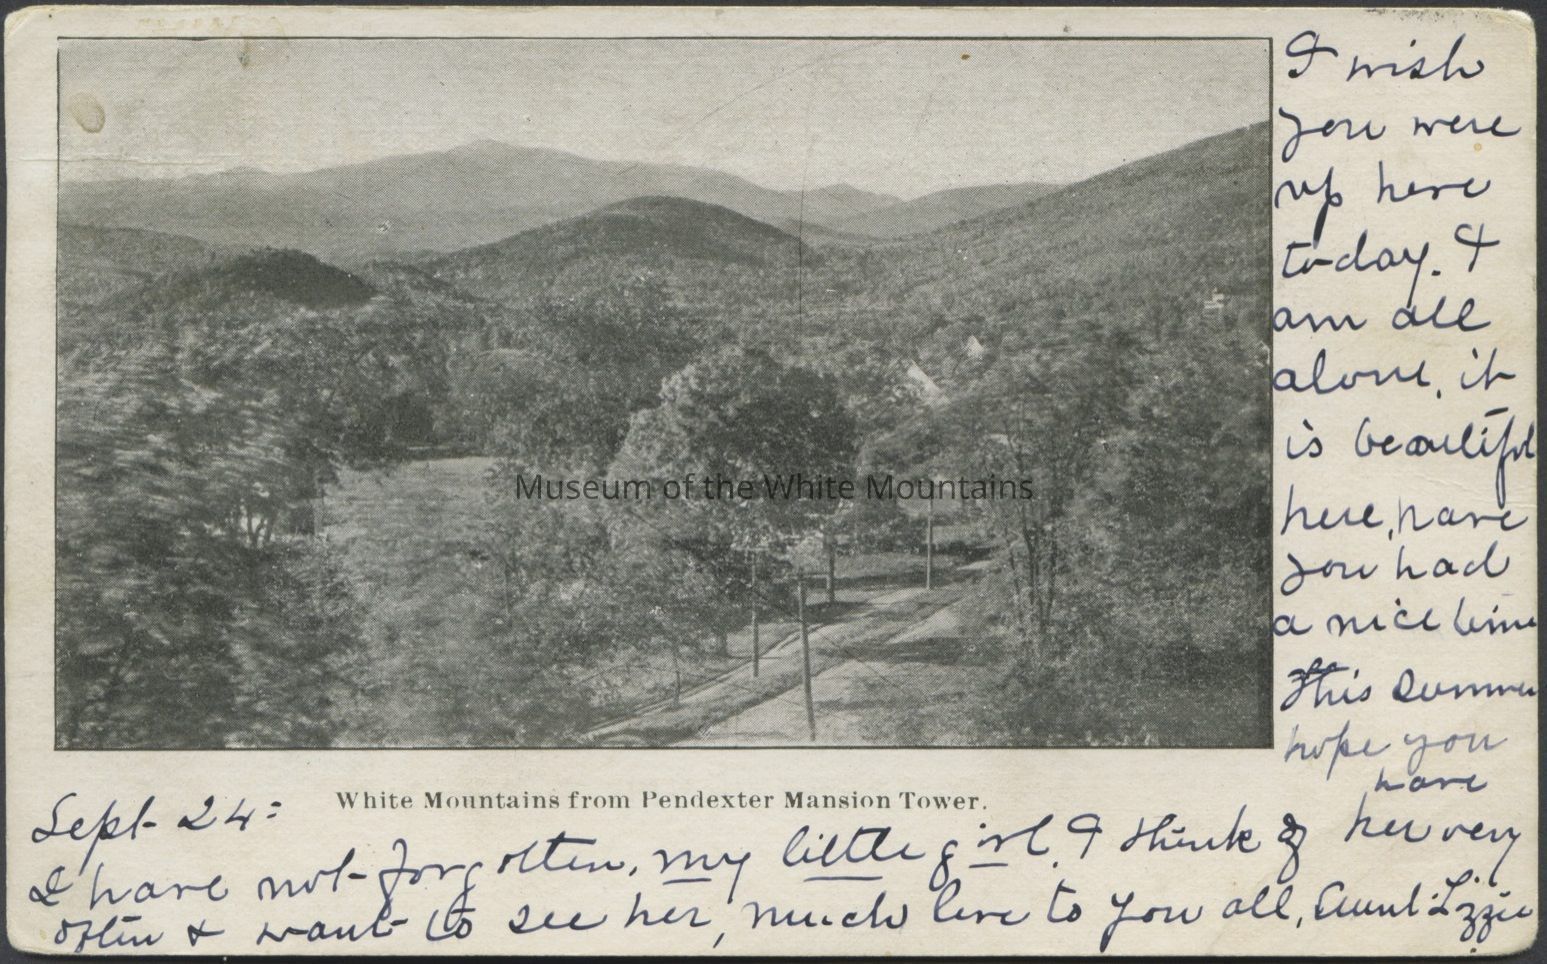 I wish
you were
up here
to-day. I
am all
alone, it
is beautiful
here, have
you had
a nice time
this summer
hope you
have
Museum of the White Mountains
White Mountains from Pendexter Mansion Tower.
Sept- 24:
I have not forgotten, my little girl, I think of her very
often & want to see her, much love to you all, Aunt Lizzie